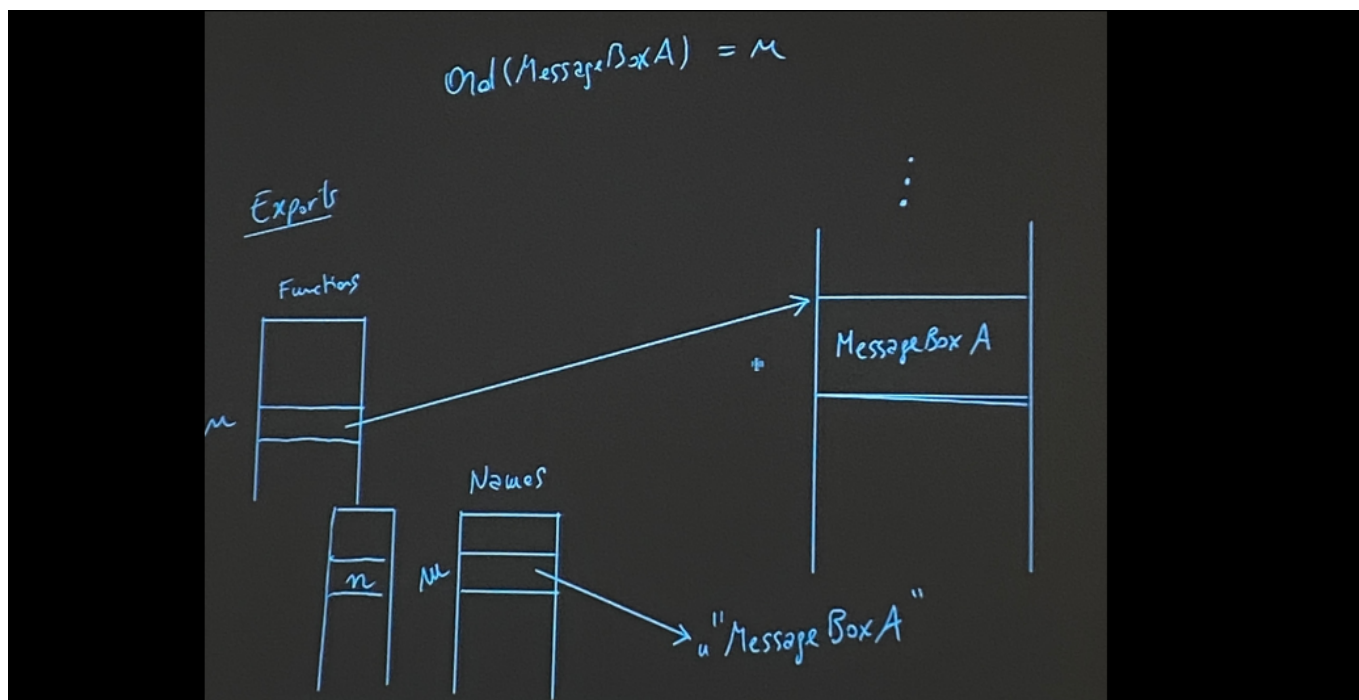 Ord(MessageBoxA) = n
Exports
Functions
n
MessageBoxA
Names
n
m
"MessageBoxA"